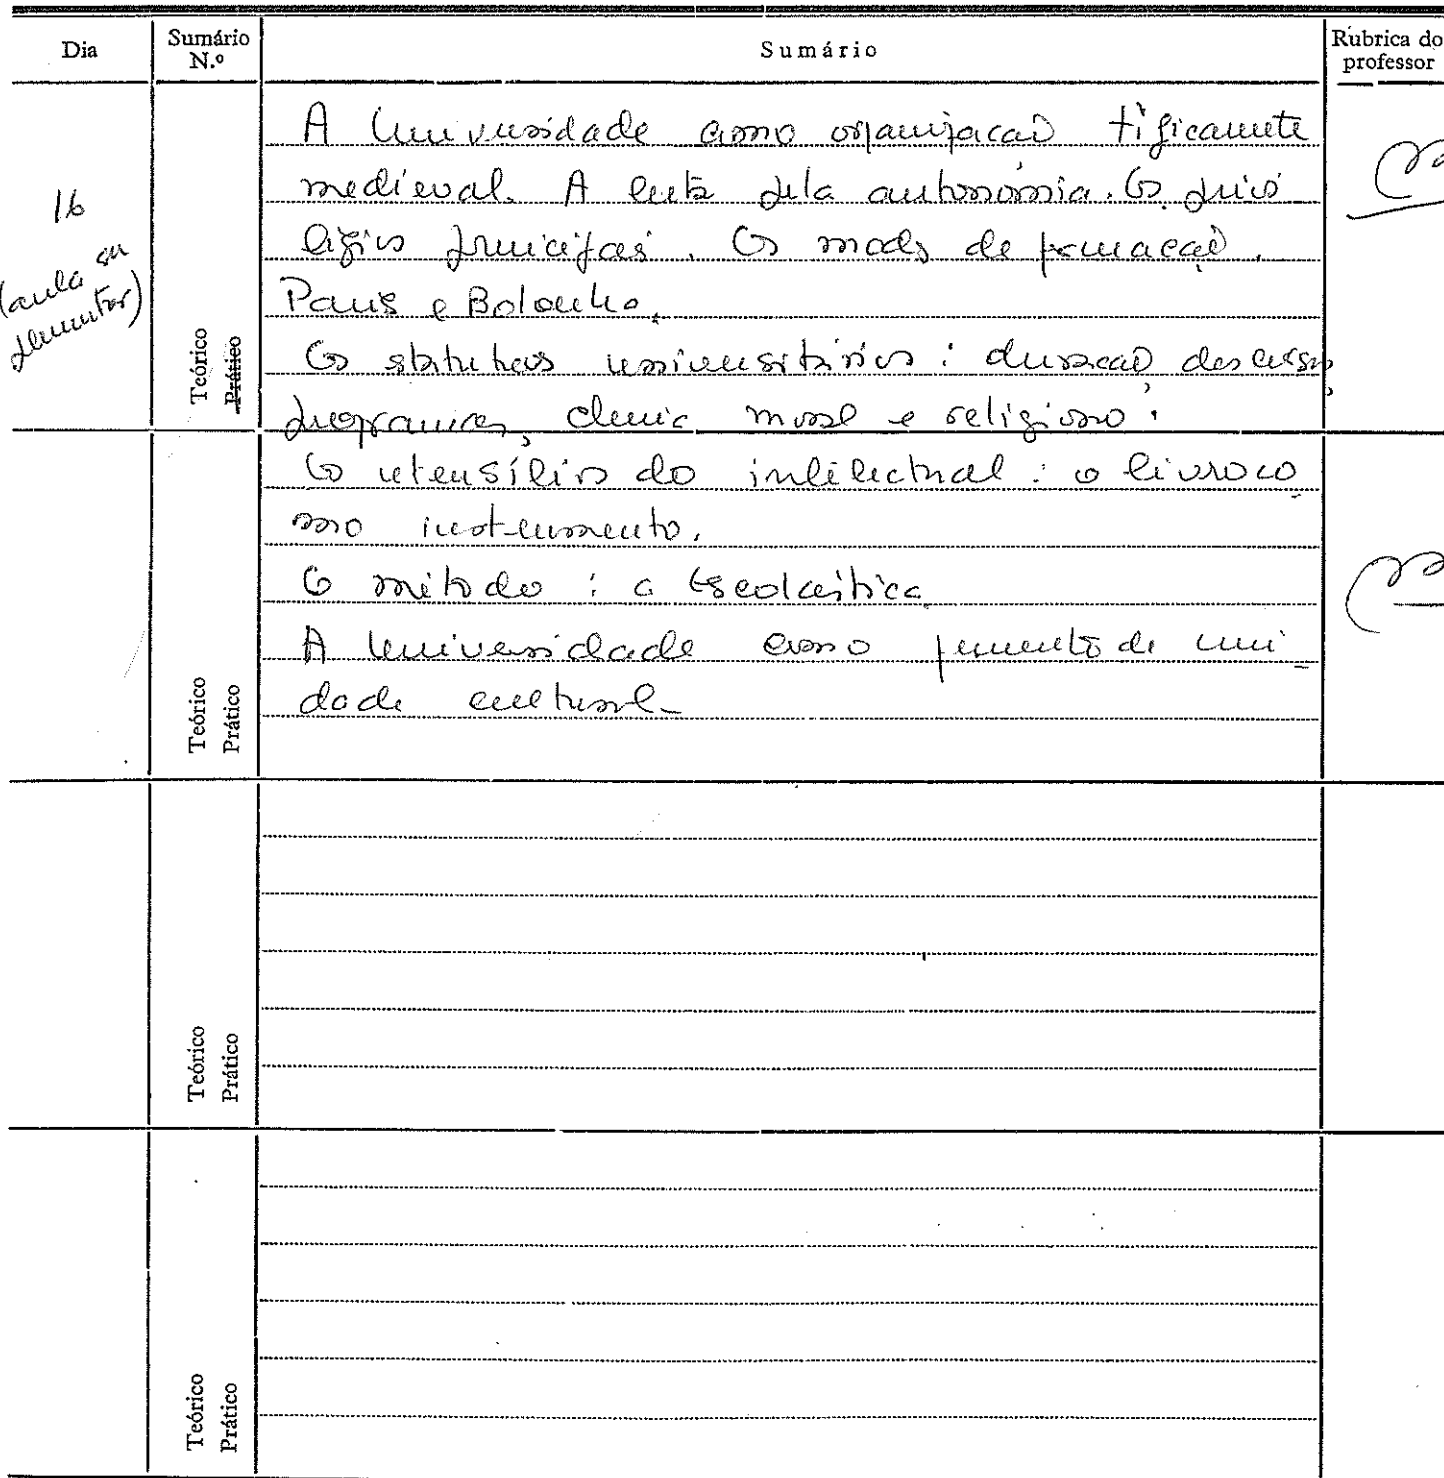 Dia
Sumário
N.º
Sumário
Rubrica do
professor
16
(aula su
plementar)
Teórico
Prático
A Universidade como organização tipicamente
medieval. A luta pela autonomia. Os privi
légios principais. Os modos de formação.
Paris e Bolonha.
Os statutos universitários: duração dos cursos,
programas, clima moral e religioso.
Teórico
Prático
O utensílio do intelectual: o livro co
mo instrumento.
O método: a Escolástica
A Universidade como fomento de uni-
dade cultural
Teórico
Prático
Teórico
Prático